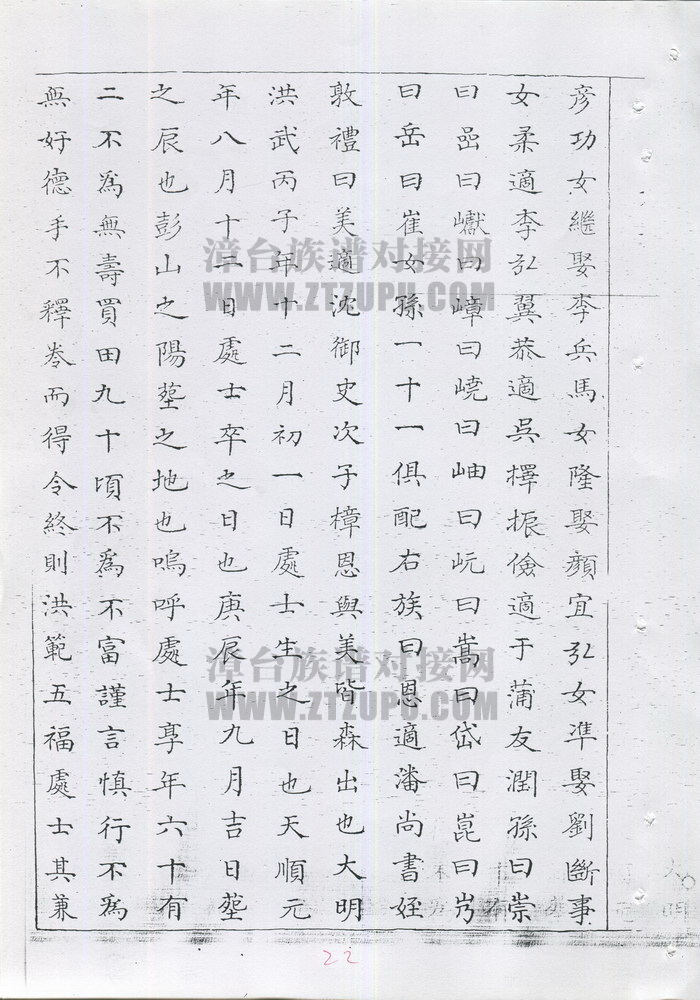 彥功女繼娶李兵馬女隆娶顏宜弘女準娶劉斷事
女柔適李弘翼恭適吳擇振儉適于蒲友潤孫曰崇
曰嵒曰巘曰嶂曰嶢曰岫曰岏曰嵩曰岱曰崑曰岢
曰岳曰崔女孫一十一俱配右族曰恩適潘尚書姪
敦禮曰美適沈御史次子樟恩與美皆森出也大明
洪武丙子年十二月初一日處士生之日也天順元
年八月十二日處士卒之日也庚辰年九月吉日塟
之辰也彭山之陽塟之地也嗚呼處士享年六十有
二不為無壽買田九十頃不為不富謹言慎行不為
無好德手不釋卷而得令終則洪範五福處士其兼
漳台族谱对接网
WWW.ZTZUPU.COM
漳台族谱对接网
WWW.ZTZUPU.COM
22